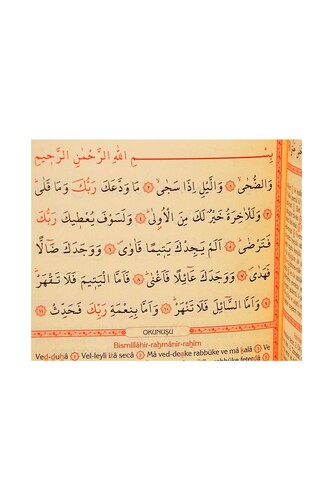 بِسْمِ اللّٰهِ الرَّحْمٰنِ الرَّحِيمِ
وَالضُّحٰىۙ ﴿١﴾ وَالَّيْلِ اِذَا سَجٰىۙ ﴿٢﴾ مَا وَدَّعَكَ رَبُّكَ وَمَا قَلٰىۜ
﴿٣﴾ وَلَلْاٰخِرَةُ خَيْرٌ لَكَ مِنَ الْاُو۫لٰىۜ ﴿٤﴾ وَلَسَوْفَ يُعْط۪يكَ رَبُّكَ
فَتَرْضٰىۜ ﴿٥﴾ اَلَمْ يَجِدْكَ يَت۪يمًا فَاٰوٰىۖ ﴿٦﴾ وَوَجَدَكَ ضَٓالًّا
فَهَدٰىۖ ﴿٧﴾ وَوَجَدَكَ عَٓائِلًا فَاَغْنٰىۜ ﴿٨﴾ فَاَمَّا الْيَت۪يمَ فَلَا تَقْهَرْۜ
﴿٩﴾ وَاَمَّا السَّٓائِلَ فَلَا تَنْهَرْۜ ﴿١٠﴾ وَاَمَّا بِنِعْمَةِ رَبِّكَ فَحَدِّثْ ﴿١١﴾
OKUNUŞU
Bismillâhir-raḥmânir-raḥîm
Ved-duḥâ ① Vel-leyli iẕâ secâ ② Mâ ved-deake rabbüke ve mâ ḳalâ ③ Ve